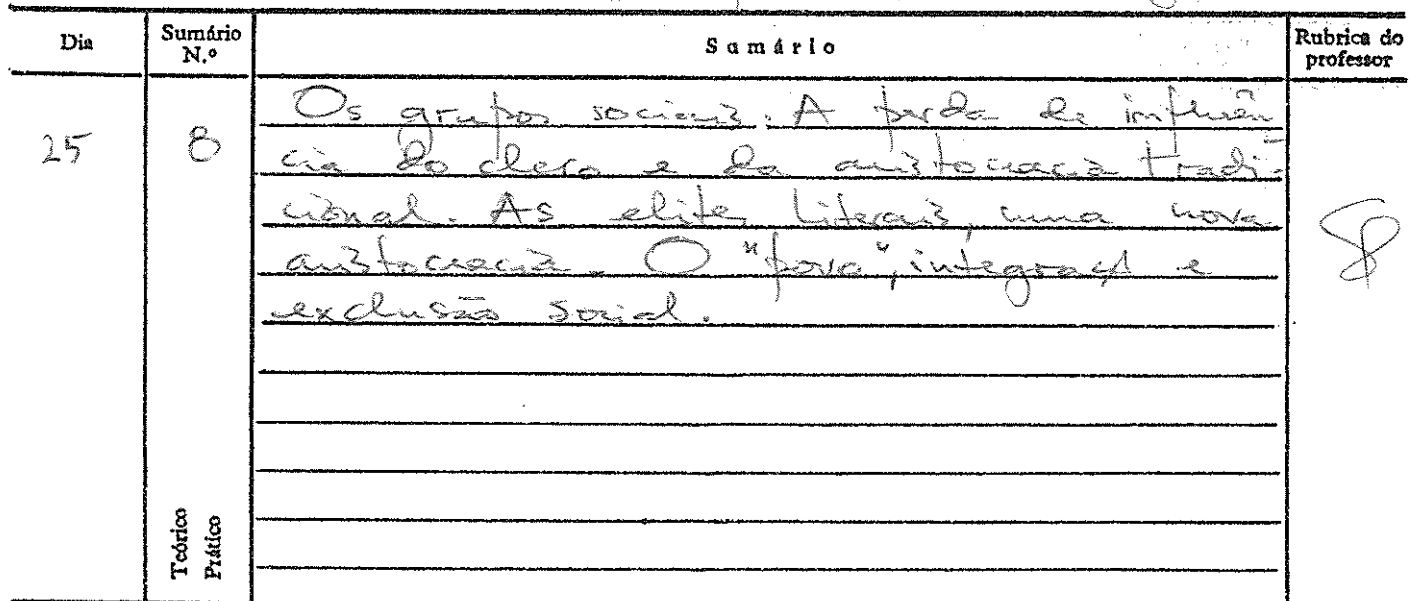 Dia
Sumário N.º
Sumário
Rubrica do professor
25
8
Os grupos sociais. A perda de influên
cia do clero e da aristocracia tradi-
cional. As elites liberais, uma nova
aristocracia. O "povo", integração e
exclusão social.
Teórico
Prático